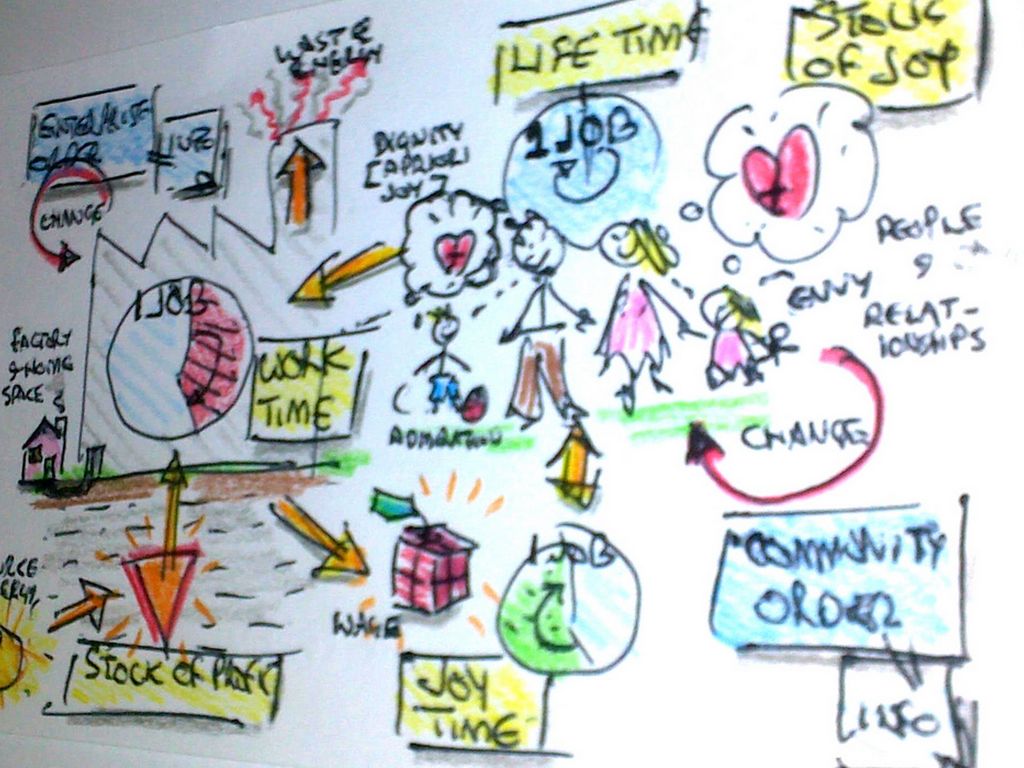 WASTE
ENERGY
LIFE TIME
STOCK
OF JOY
ENTERPRISE
ORDER
CHANGE
DIGNITY
[APRIORI
JOY]
1 JOB
PEOPLE
&
RELAT-
IONSHIPS
ENVY
1 JOB
FACTORY
& HOME
SPACE
WORK
TIME
ADMIRATION
CHANGE
1 JOB
COMMUNITY
ORDER
WAGE
STOCK OF PROFIT
JOY
TIME
INFO